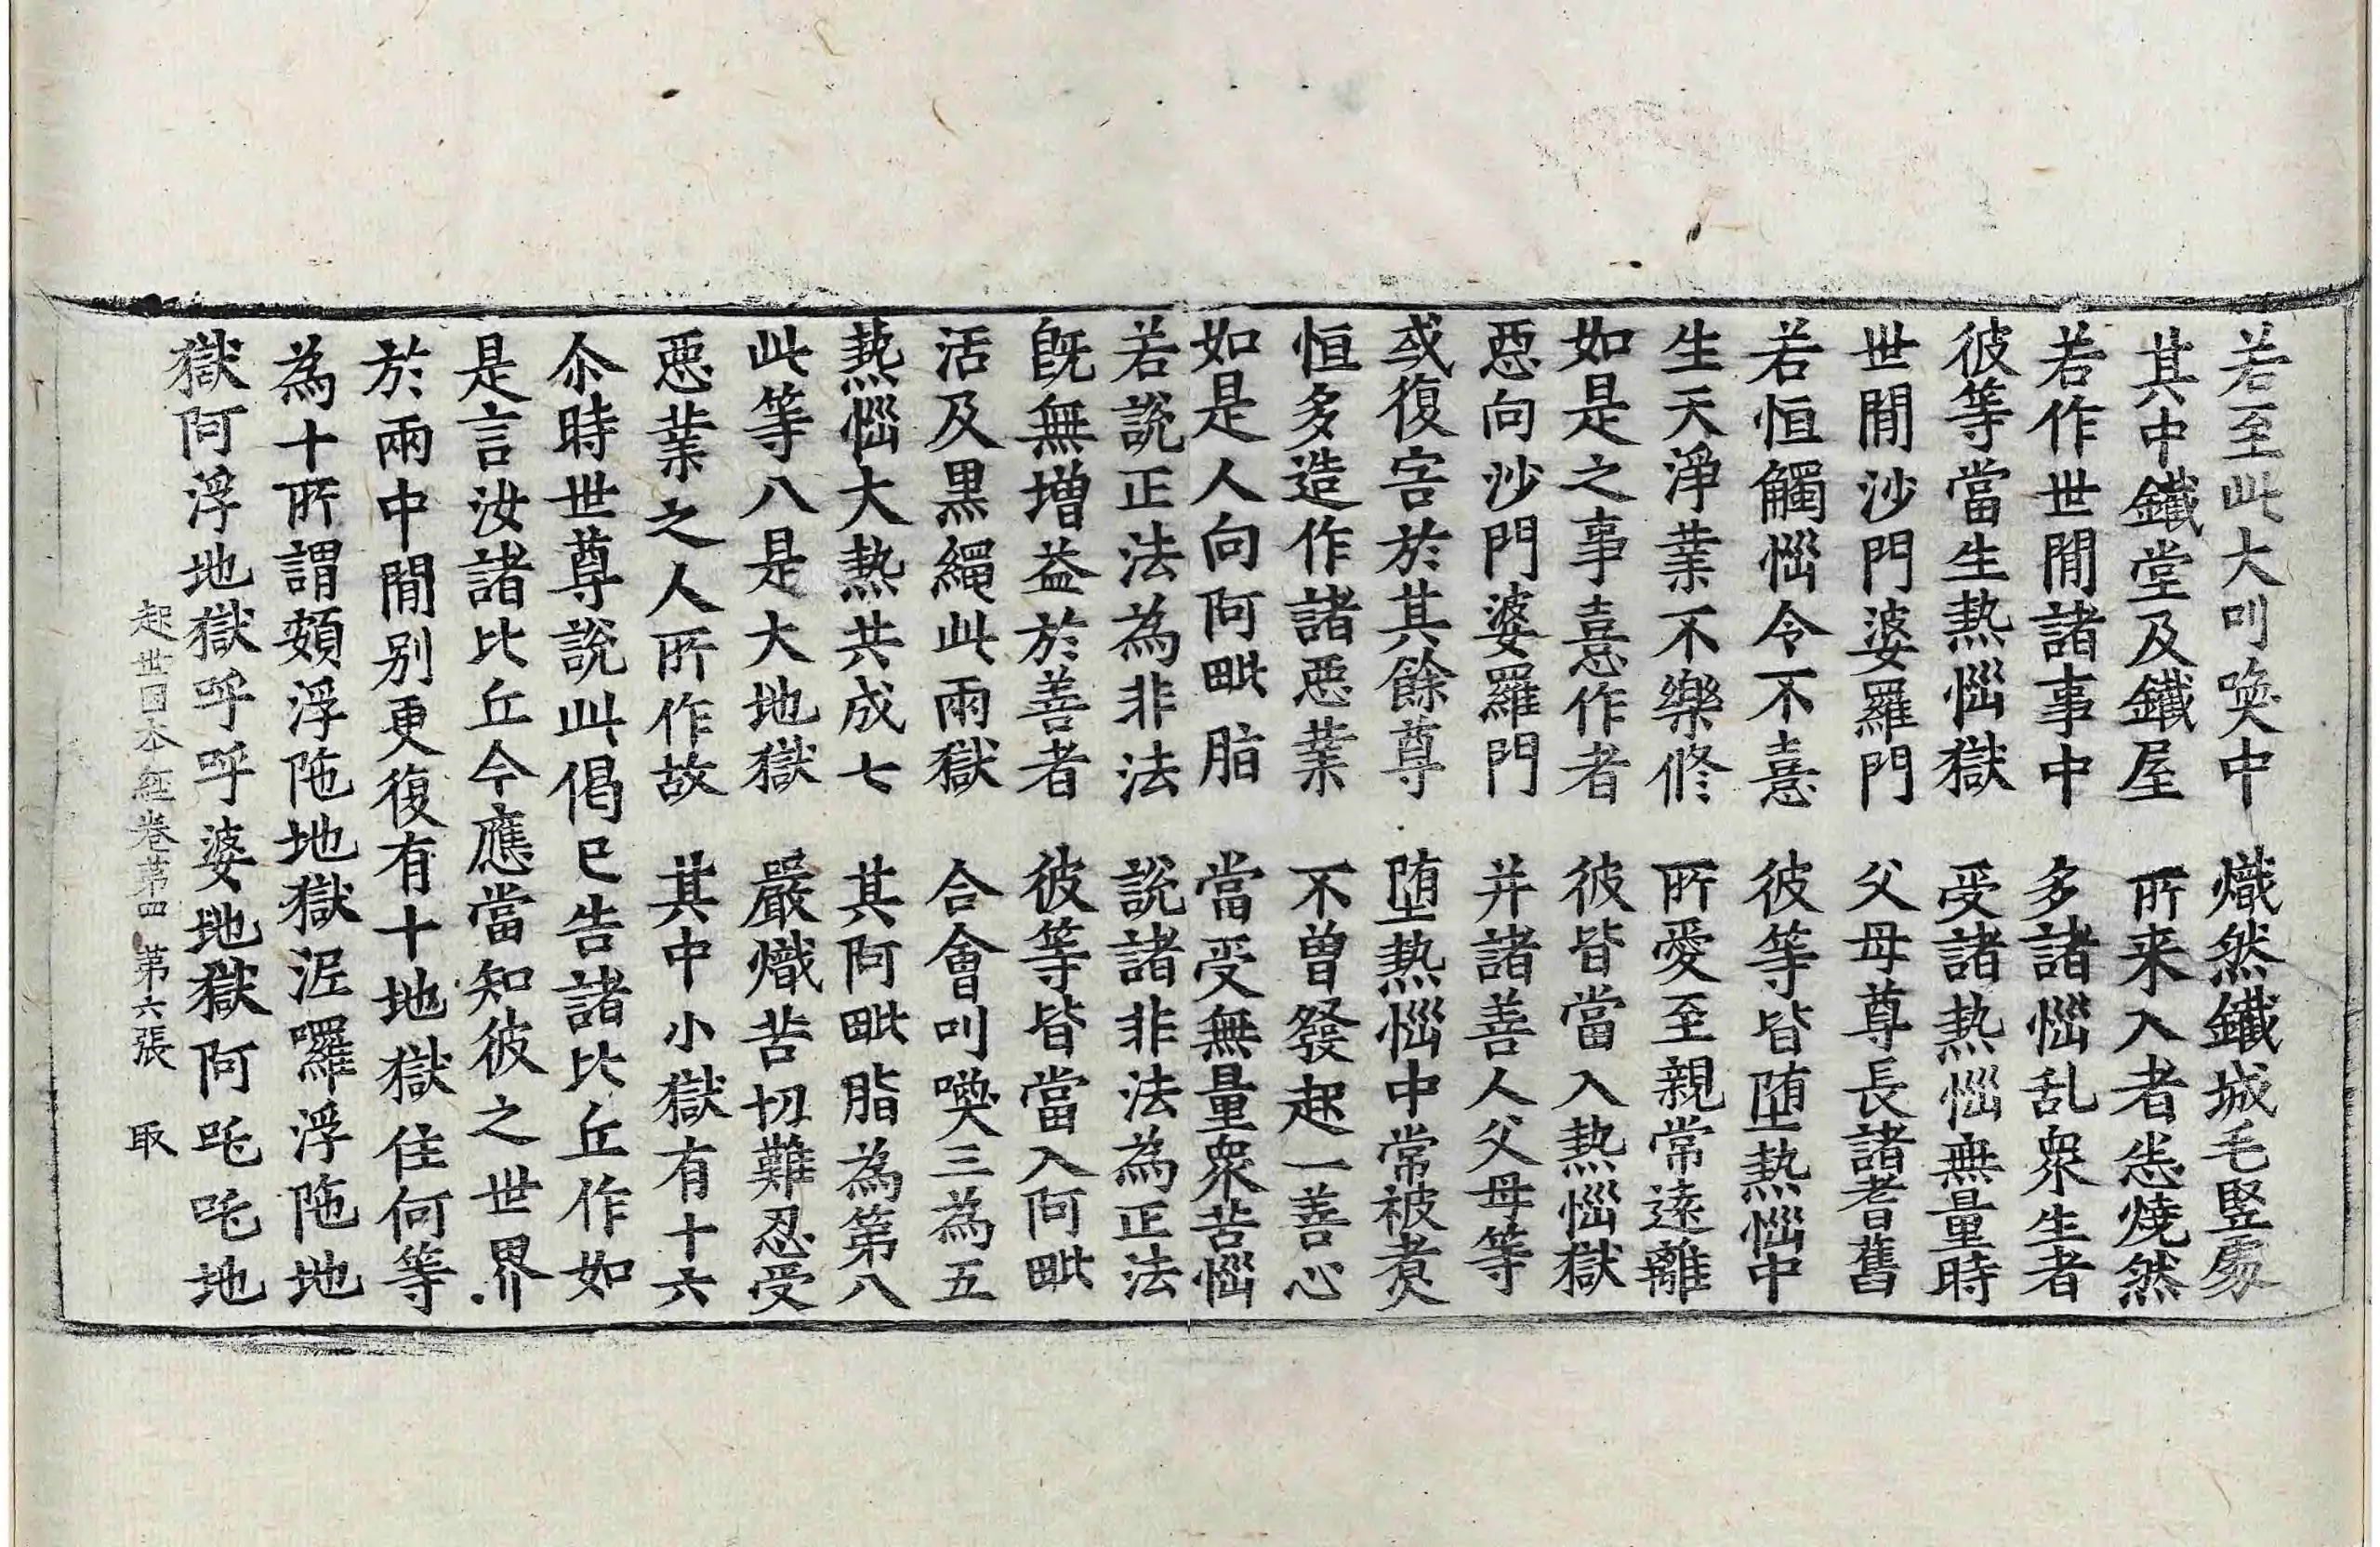 若至此大叫喚中　熾然鐵城毛竪處
其中鐵堂及鐵屋　所来入者悉燒然
若作世間諸事中　多諸惱乱衆生者
彼等當生熱惱獄　受諸熱惱無量時
世間沙門婆羅門　父母尊長諸耆舊
若恒觸惱令不憙　彼等皆堕熱惱中
生天淨業不樂修　所愛至親常遠離
如是之事憙作者　彼皆當入熱惱獄
惡向沙門婆羅門　并諸善人父母等
或復害於其餘尊　堕熱惱中常被煑
恒多造作諸惡業　不曾發起一善心
如是人向阿毗脂　當受無量衆苦惱
若說正法為非法　說諸非法為正法
旣無增益於善者　彼等皆當入阿毗
活及黒繩此兩獄　合會叫喚三為五
熱惱大熱共成七　其阿毗脂為第八
此等八是大地獄　嚴熾苦切難忍受
惡業之人所作故　其中小獄有十六
尒時世尊說此偈已告諸比丘作如
是言汝諸比丘今應當知彼之世界
於兩中閒别更復有十地獄住何等
為十所謂頞浮陁地獄泥囉浮陁地
獄阿浮地獄呼呼婆地獄阿吒吒地
起世因本經卷第四　第六張　取